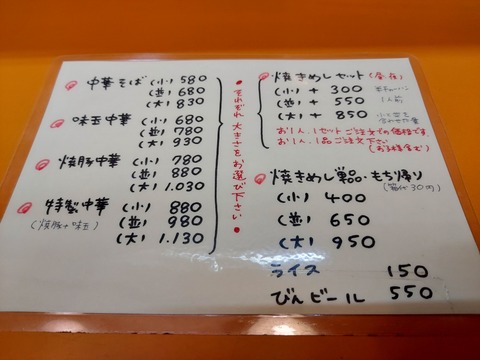 中華そば (小) 580
(並) 680
(大) 830
味玉中華 (小) 680
(並) 780
(大) 930
焼豚中華 (小) 780
(並) 880
(大) 1.030
特製中華 (小) 880
(焼豚+味玉) (並) 980
(大) 1.130
●それぞれ大きさをお選び下さい●
焼きめしセット(昼・夜)
(小) + 300
(並) + 550 1人前
(大) + 850
お1人、1セットご注文の価格です。
お1人、1品ご注文下さい
(お子様含む)
焼きめし単品・もち帰り
(箱代30円)
(小) 400
(並) 650
(大) 950
ライス 150
びんビール 550